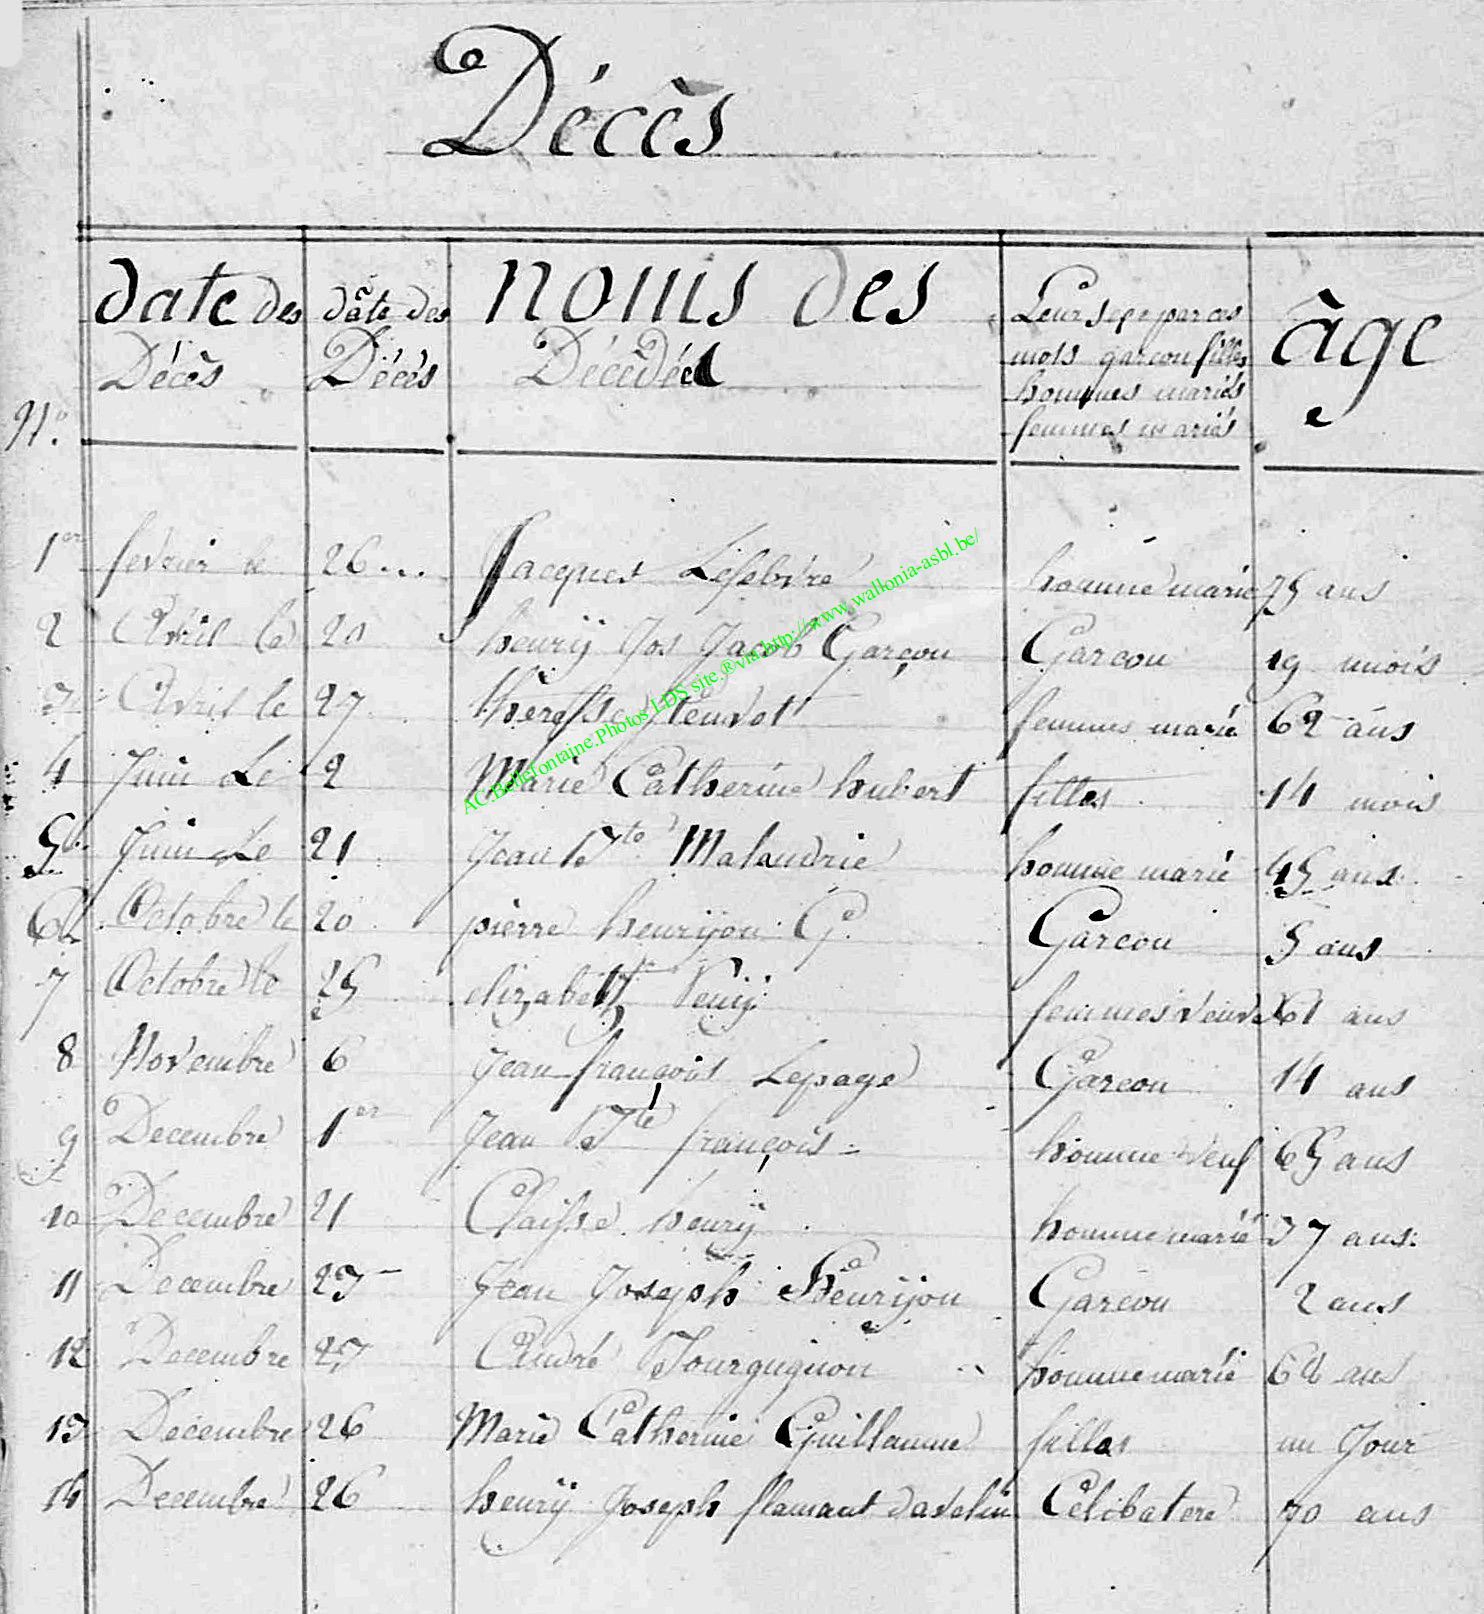 Décès
N.o date des Décès dâte des Décès noms des Décédés Leur sexe par ces mots garcon filles hommes mariés femmes mariés âge
1er fevrier le 26... Jacques Lefebvre homme marié 75 ans
2 Avril le 20 henrÿ Jos Jacob Garçon Garcon 19 mois
3 Avril le 27 théresse femmes marié 62 ans
4 Juin Le 2 Marie Catherine hubert filles 14 mois
5 Juin Le 21 Jean Bte Malandrie homme marié 45 ans
6 Octobre le 20 pierre henrijon G. Garcon 5 ans
7 Octobre le 25 elizabeth femmes veuve 61 ans
8 Novembre 6 Jean françois Lepage Garcon 14 ans
9 Decembre 1er Jean Bte françois homme veuf 65 ans
10 Decembre 21 henrÿ homme marié 37 ans
11 Decembre 23 Jean Joseph Henrijon Garcon 2 ans
12 Decembre André homme marié 62 ans
13 Decembre 26 Marie Catherine Guillaume filles un Jour
14 Decembre 26 henrÿ Joseph flamant Celibatere 70 ans
AC.Bellefontaine.Photos LDS site.®via http://www.wallonia-asbl.be/